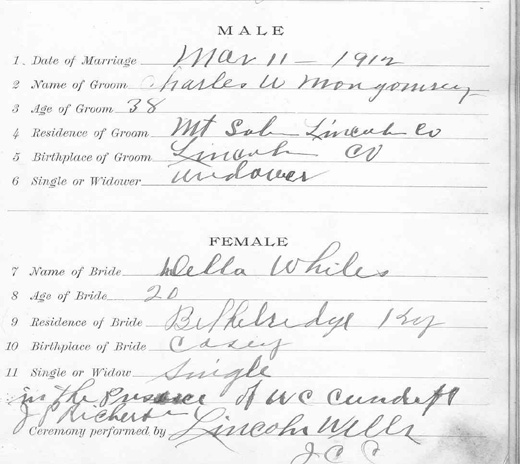 MALE
1. Date of Marriage Mar 11 - 1912
2 Name of Groom Charles W Montgomrey
3 Age of Groom 38
4 Residence of Groom Mt Salem Lincoln Co
5 Birthplace of Groom Lincoln Co
6 Single or Widower Widower
FEMALE
7 Name of Bride Della Whiles
8 Age of Bride 20
9 Residence of Bride Bethelridge Ky
10 Birthplace of Bride Casey
11 Single or Widow Single
in the Presence of WC
J P
Ceremony performed by Lincoln Wells
J C C